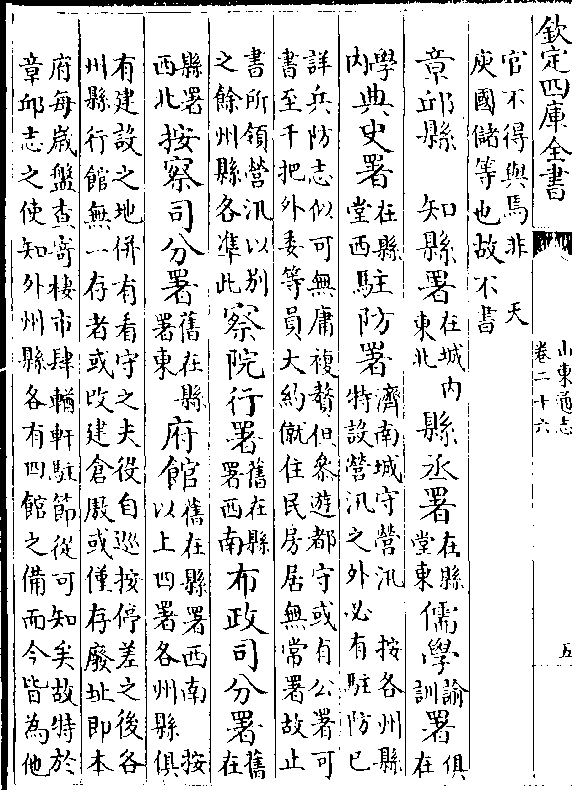 欽定四庫全書
山東通志
卷二十六
五
官不得與焉非　天
庾國儲等也故不書
章邱縣　知縣署在城内
東北縣丞署在縣
堂東儒學諭
訓署俱
在
學
内典史署在縣
堂西駐防署濟南城守營汛　按各州縣
特設營汛之外必有駐防已
詳兵防志似可無庸複贅但叅遊都守或有公署可
書至千把外委等員大約僦住民房居無常署故止
書所領營汛以别
之餘州縣各凖此察院行署舊在縣
署西南布政司分署舊
在
縣署
西北按察司分署舊在縣
署東府館舊在縣署西南　按
以上四署各州縣俱
有建設之地併有看守之夫役自巡按停差之後各
州縣行館無一存者或改建倉厫或僅存廢址即本
府每歲盤查寄棲市肆輶軒駐節從可知矣故特於
章邱志之使知外州縣各有四館之備而今皆為他